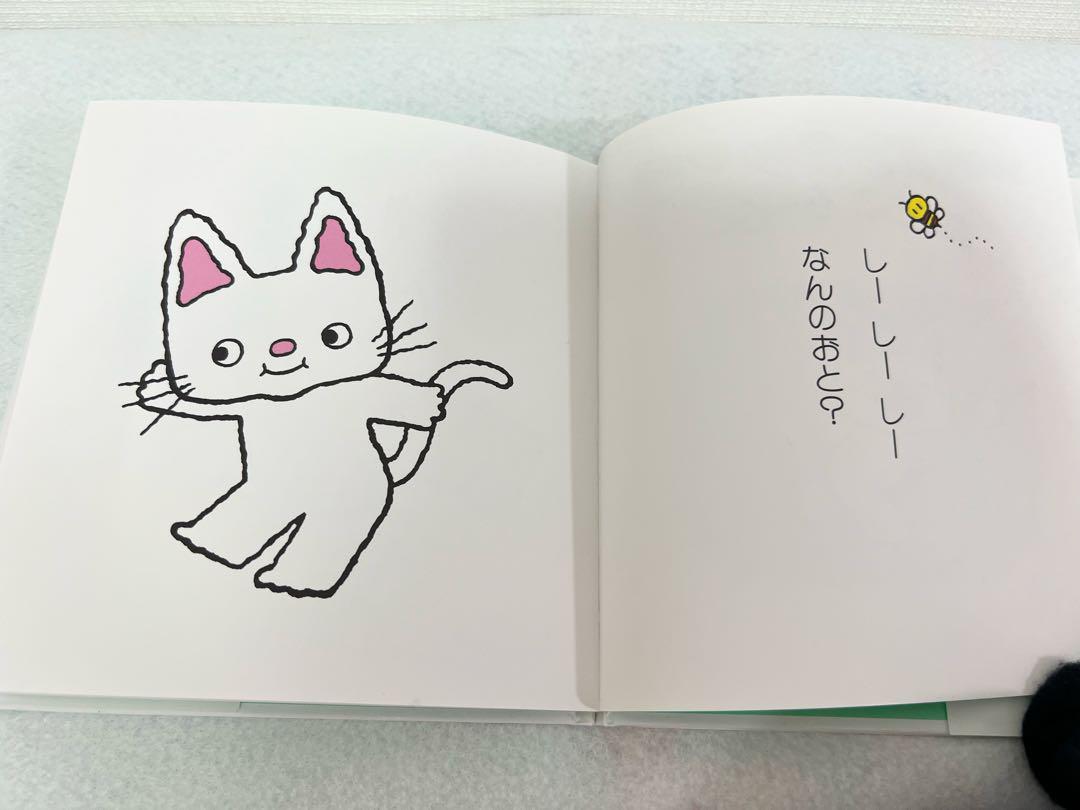 しー しー しー
なんのおと？